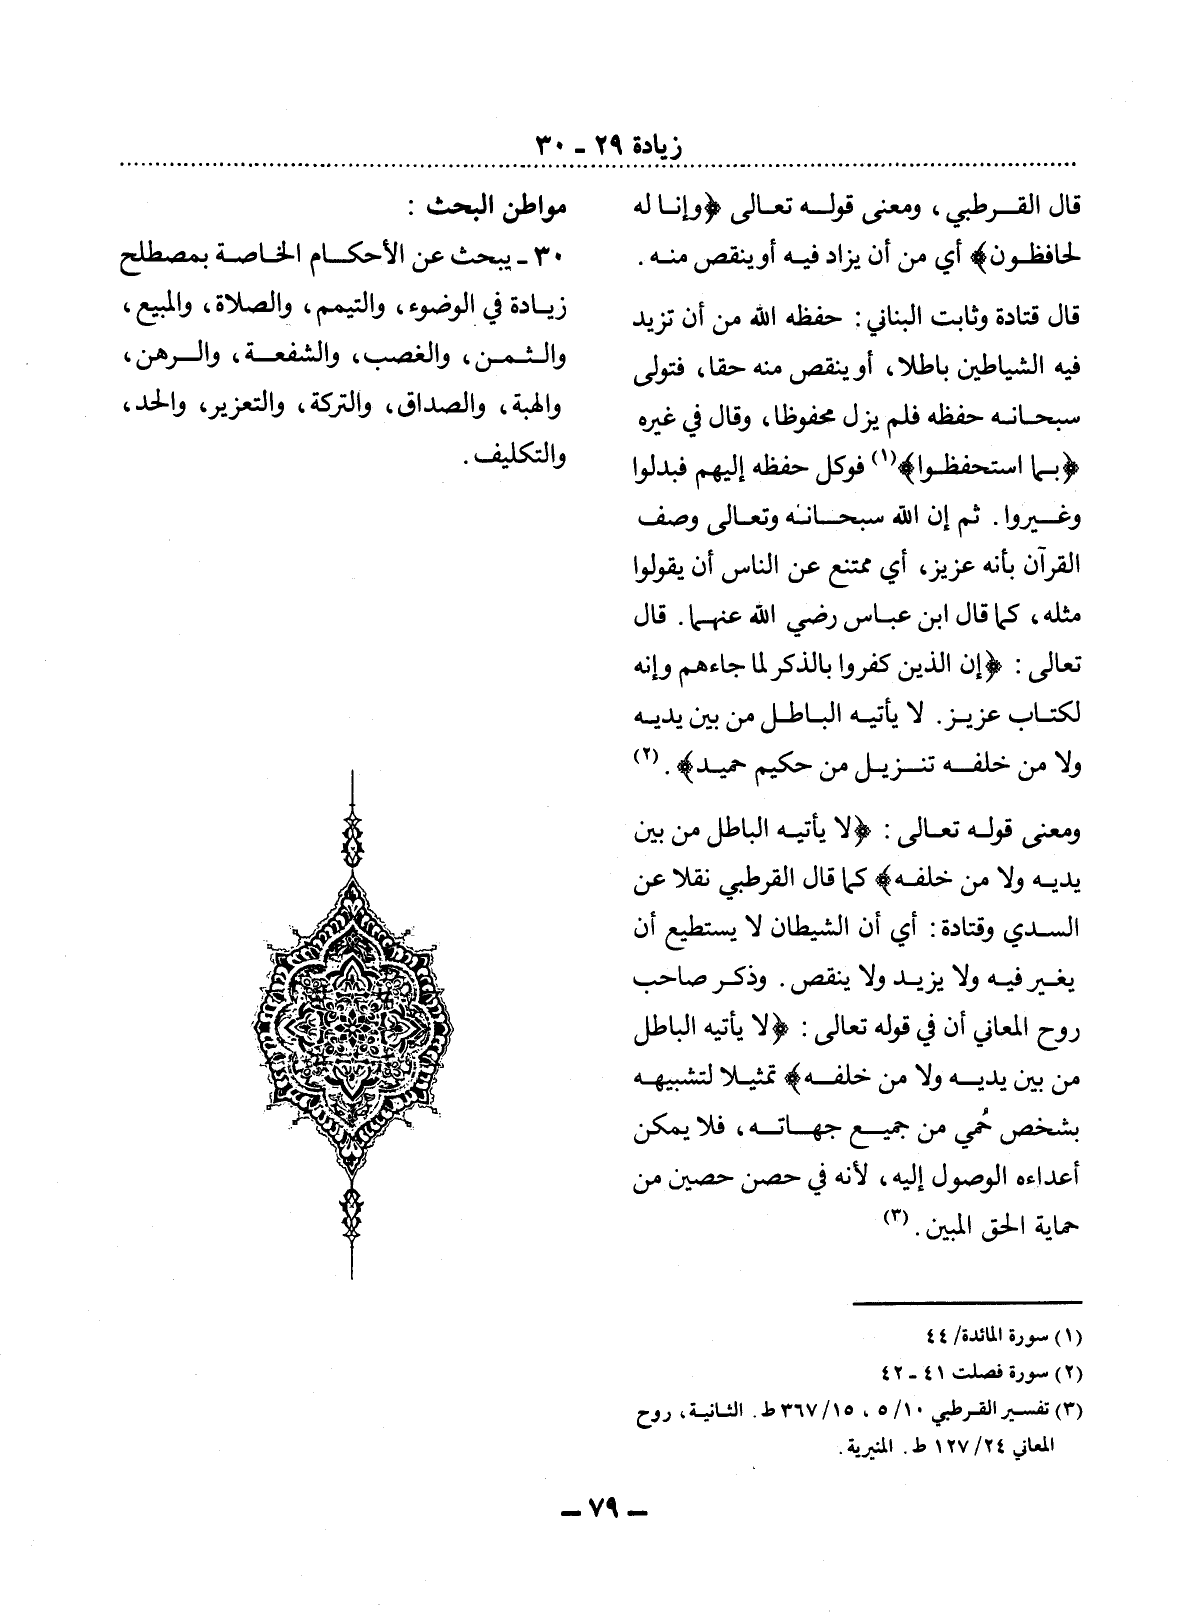 زيادة ٢٩ - ٣٠
قال القرطبي، ومعنى قوله تعالى ﴿وإنا له
لحافظون﴾ أي من أن يزاد فيه أو ينقص منه.
قال قتادة وثابت البناني: حفظه الله من أن تزيد
فيه الشياطين باطلا، أو ينقص منه حقا، فتولى
سبحانه حفظه فلم يزل محفوظا، وقال في غيره
﴿بما استحفظوا﴾(١) فوكل حفظه إليهم فبدلوا
وغيروا. ثم إن الله سبحانه وتعالى وصف
القرآن بأنه عزيز، أي ممتنع عن الناس أن يقولوا
مثله، كما قال ابن عباس رضي الله عنهما. قال
تعالى: ﴿إن الذين كفروا بالذكر لما جاءهم وإنه
لكتاب عزيز. لا يأتيه الباطل من بين يديه
ولا من خلفه تنزيل من حكيم حميد﴾.(٢)
ومعنى قوله تعالى: ﴿لا يأتيه الباطل من بين
يديه ولا من خلفه﴾ كما قال القرطبي نقلا عن
السدي وقتادة: أي أن الشيطان لا يستطيع أن
يغير فيه ولا يزيد ولا ينقص. وذكر صاحب
روح المعاني أن في قوله تعالى: ﴿لا يأتيه الباطل
من بين يديه ولا من خلفه﴾ تمثيلا لتشبيهه
بشخص حُمي من جميع جهاته، فلا يمكن
أعداءه الوصول إليه، لأنه في حصن حصين من
حماية الحق المبين.(٣)
(١) سورة المائدة/ ٤٤
(٢) سورة فصلت ٤١ - ٤٢
(٣) تفسير القرطبي ١٠/ ٥، ١٥/ ٣٦٧ ط. الثانية، روح
المعاني ٢٤/ ١٢٧ ط. المنيرية.
مواطن البحث:
٣٠ - يبحث عن الأحكام الخاصة بمصطلح
زيادة في الوضوء، والتيمم، والصلاة، والمبيع،
والثمن، والغصب، والشفعة، والرهن،
والهبة، والصداق، والتركة، والتعزير، والحد،
والتكليف.
– ٧٩ –